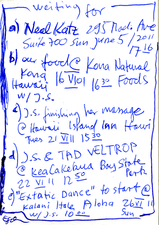 waiting for
a) Neal Katz 295 Mad. Ave
Suite 700 Sun June 5/2011
17 16
b) our food @ Kona Natural
Kona Foods
Hawaii 16 VI 01 16 30
w/ J.S.
c) J.S. finishing her massage
@ Hawaii Island Inn Hawi
Tues 21 VI 11 15 30
d) J.S & TAD VELTROP
@ Keala Kakewa Bay State
Park
22 VI 11 12 50
e) "Extatic Dance" to start @
Kalani Hale Aloha 26 VI 11
w/ J.S. 10 20 Sun